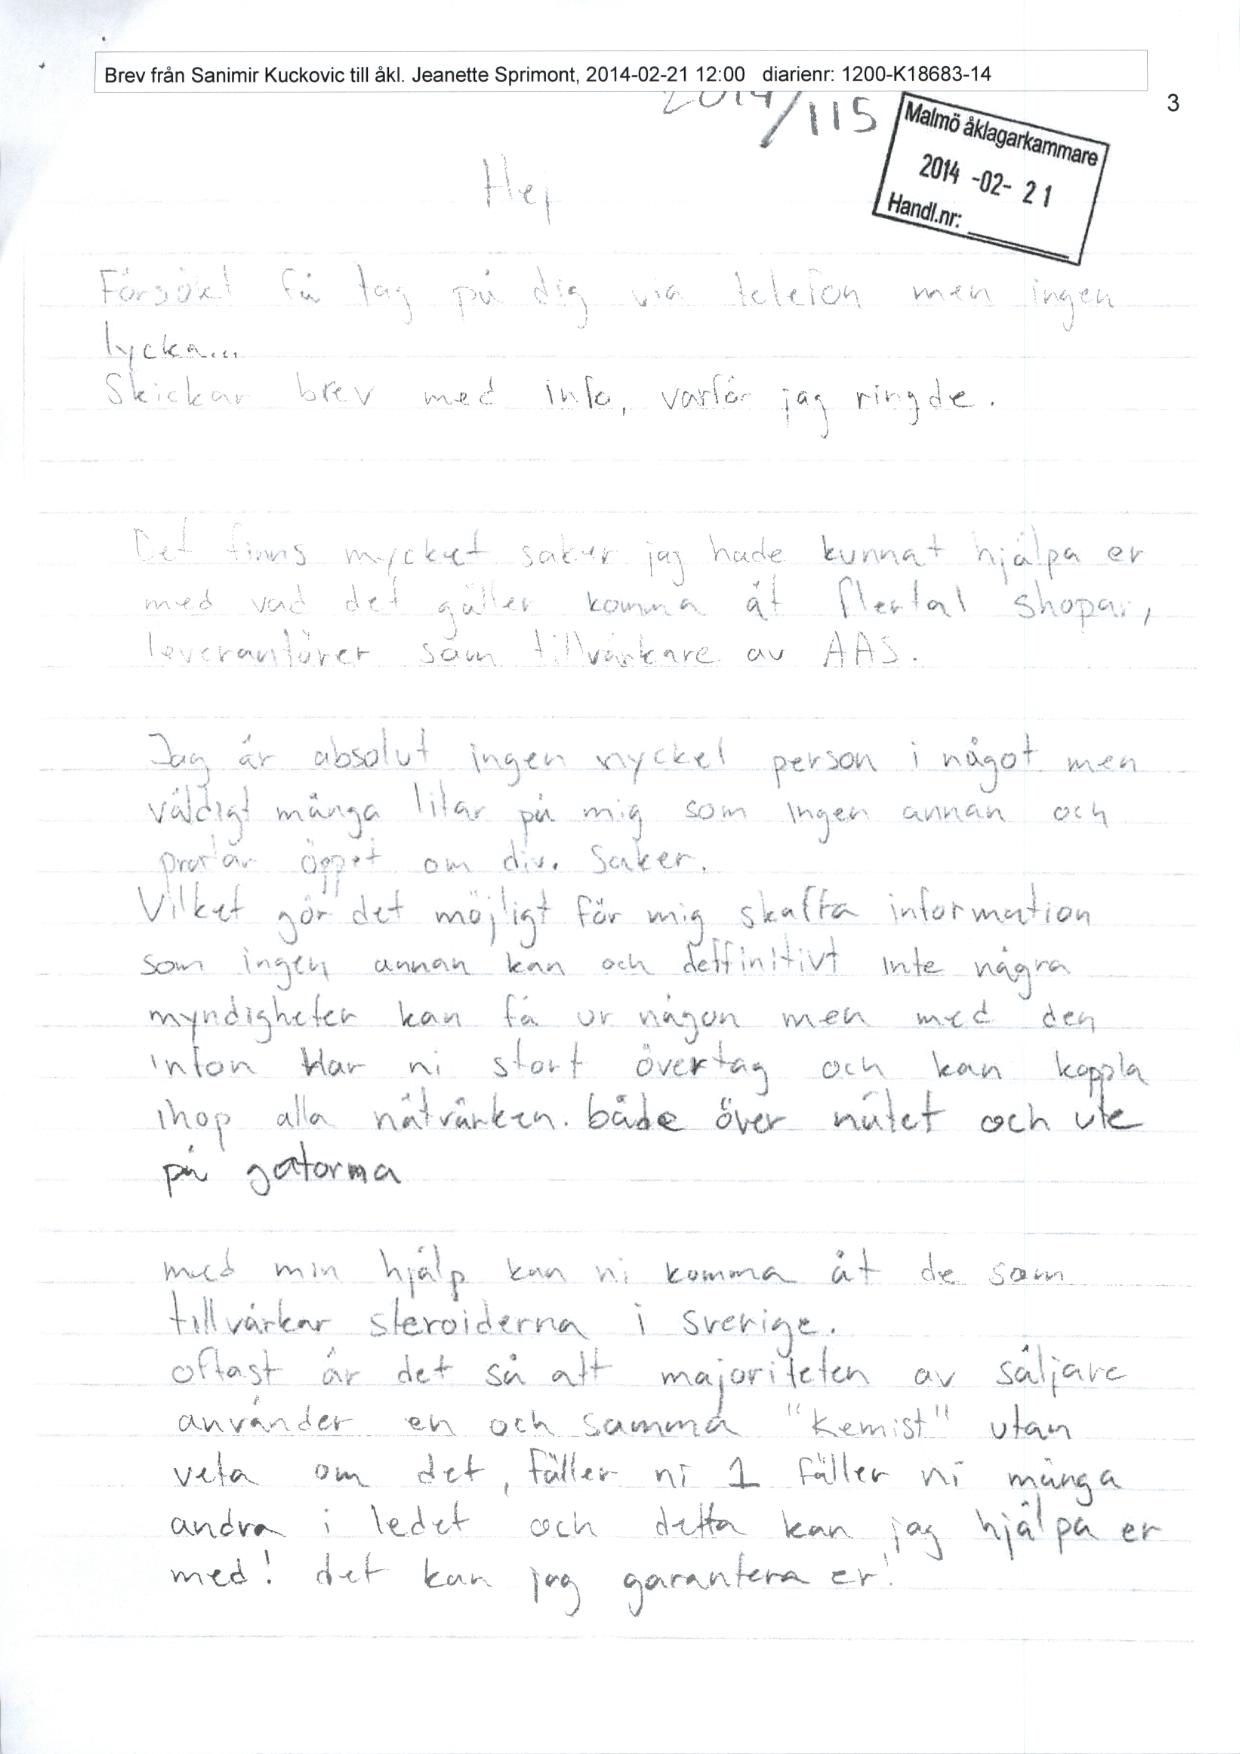 Brev från Sanimir Kuckovic till åkl. Jeanette Sprimont, 2014-02-21 12:00 diarienr: 1200-K18683-14
3
2014/115
Malmö åklagarkammare
2014 -02- 21
Handl.nr:
Hej
Försökt få tag på dig via telefon men ingen
lycka...
Skickar brev med info, varför jag ringde.
Det finns mycket saker jag hade kunnat hjälpa er
med vad det gäller komma åt flertal shopar,
leverantörer som tillvärkare av AAS.
Jag är absolut ingen nyckel person i något men
väldigt många litar på mig som ingen annan och
pratar öppet om div. saker.
Vilket gör det möjligt för mig skaffa information
som ingen annan kan och deffinitivt inte några
myndigheter kan få ur någon men med den
infon har ni stort övertag och kan koppla
ihop alla nätvärken. både över nätet och ute
på gatorma
med min hjälp kan ni komma åt de som
tillvärkar steroiderna i sverige.
oftast är det så att majoriteten av säljare
använder en och samma "kemist" utan
veta om det, fäller ni 1 fäller ni många
andra i ledet och detta kan jag hjälpa er
med! det kan jag garantera er!